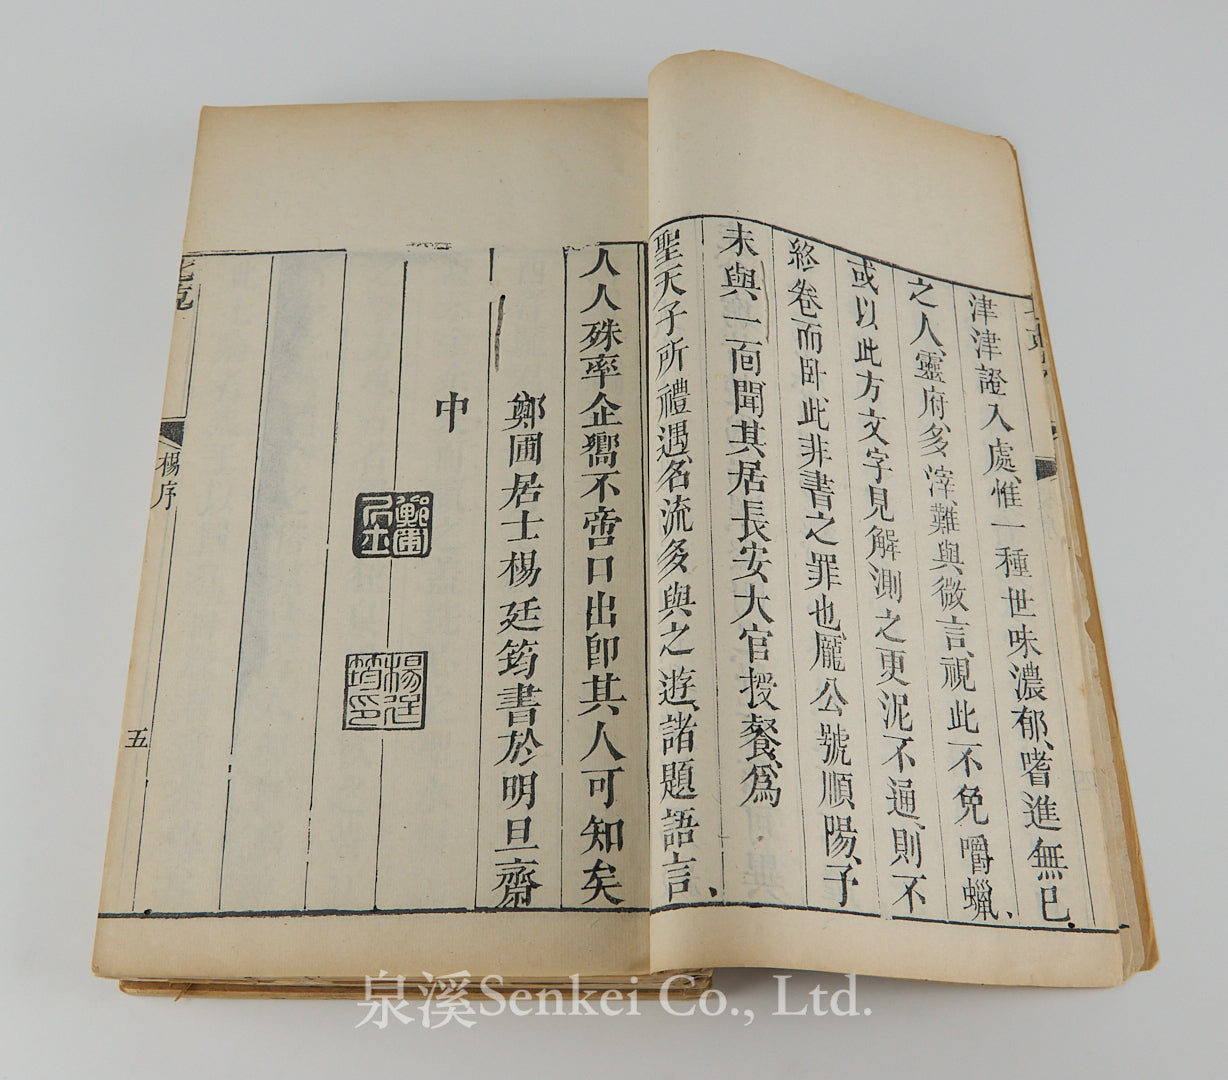 津津證入處、惟一種世味濃郁、嗜進無已、
之人、靈府多滓、難與微言、視此不免嚼蠟、
或以此方文字見解測之、更泥不通、則不
終卷而卧、此非書之罪也、龐公號順陽、予
未與一面、聞其居長安、大官授餐、為
聖天子所禮遇、名流多與之遊、諸題語言、
人人殊率企嚮不啻口出即其人可知矣
鄭圃居士楊廷筠書於明旦齋
中
鄭圃居士
楊廷筠印
七克
楊序
五
泉溪Senkei Co., Ltd.